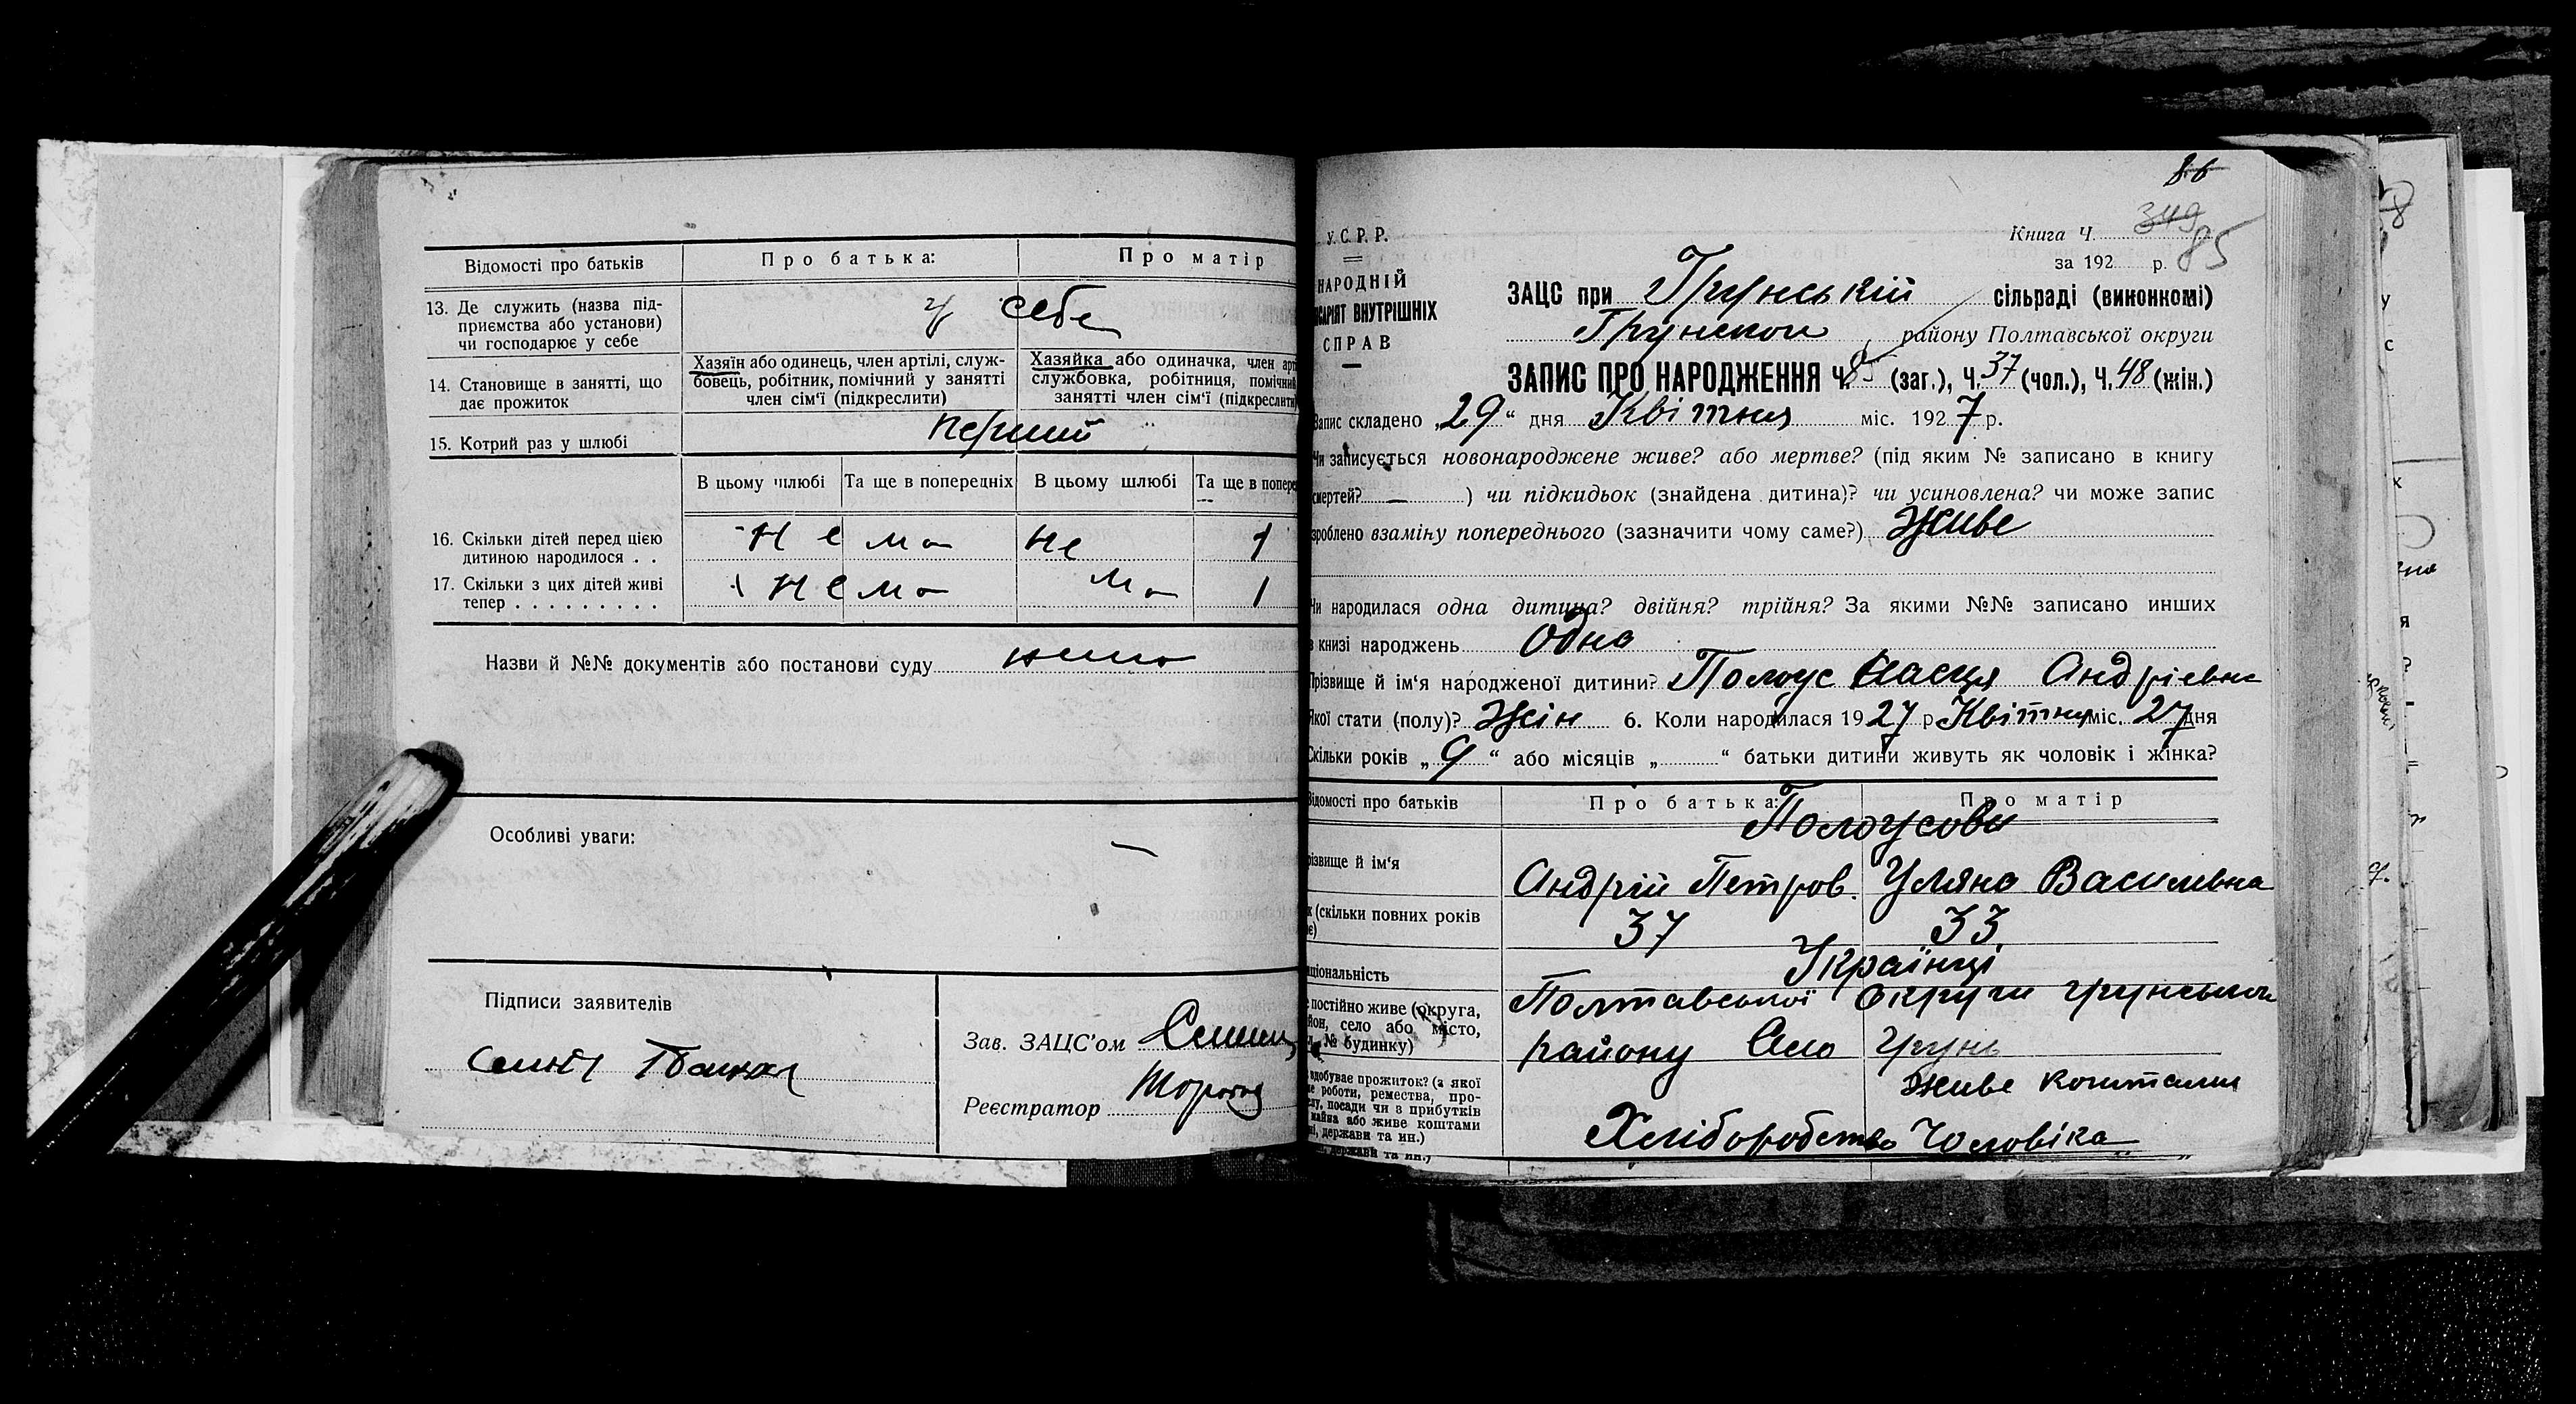 Відомості про батьків
Про батька:
Про матір
13. Де служить (назва під-
приємства або установи)
чи господарює у себе
у себе
14. Становище в занятті, що
дає прожиток
Хазяїн або одинець, член артілі, служ-
бовець, робітник, помічний у занятті
член сім'ї (підкреслити)
Хазяйка або одиначка, член арт
службовка, робітниця, помічни
занятті член сім'ї (підкреслити
15. Котрий раз у шлюбі
перший
В цьому шлюбі
Та ще в попередніх
В цьому шлюбі
Та ще в попере
16. Скільки дітей перед цією
дитиною народилося . .
Нема
не
1
17. Скільки з цих дітей живі
тепер . . . . . . . . .
Нема
ма
1
Назви й №№ документів або постанови суду
нема
Особливі уваги:
—
Підписи заявителів
Зав. ЗАЦС'ом
Реєстратор
86
Книга Ч. 349
за 192 р. 85
У.С.Р.Р.
НАРОДНІЙ
САРІЯТ ВНУТРІШНІХ
СПРАВ
ЗАЦС при Грунській сільраді (виконкомі)
Грунском району Полтавської округи
ЗАПИС ПРО НАРОДЖЕННЯ Ч. 85 (заг.), Ч. 37 (чол.), Ч. 48 (жін.)
Запис складено „29“ дня Квітня міс. 1927 р.
Чи записується новонароджене живе? або мертве? (під яким № записано в книгу
смертей? — ) чи підкидьок (знайдена дитина)? чи усиновлена? чи може запис
зроблено взаміну попереднього (зазначити чому саме?) Живе
Чи народилася одна дитина? двійня? трійня? За якими №№ записано инших
в книзі народжень Одна
Прізвище й ім'я народженої дитини? Полоус Настя Андрієвна
Якої стати (полу)? Жін 6. Коли народилася 1927 р Квітня міс. 27 дня
Скільки років „9“ або місяців „ “ батьки дитини живуть як чоловік і жінка?
Відомості про батьків
Про батька:
Про матір
Полоусови
різвище й ім'я
Андрій Петров.
Уляна Василевна
к (скільки повних років
є)
37
33
ціональність
Українці
постійно живе (округа,
йон, село або місто,
№ будинку)
Полтавської Округи Грунськом
району Село Грунь
здобуває прожиток? (з якої
е роботи, ремества, про-
су, посади чи з прибутків
майна або живе коштами
ні, держави та ин.)
Хліборобство
живе коштами
Чоловіка